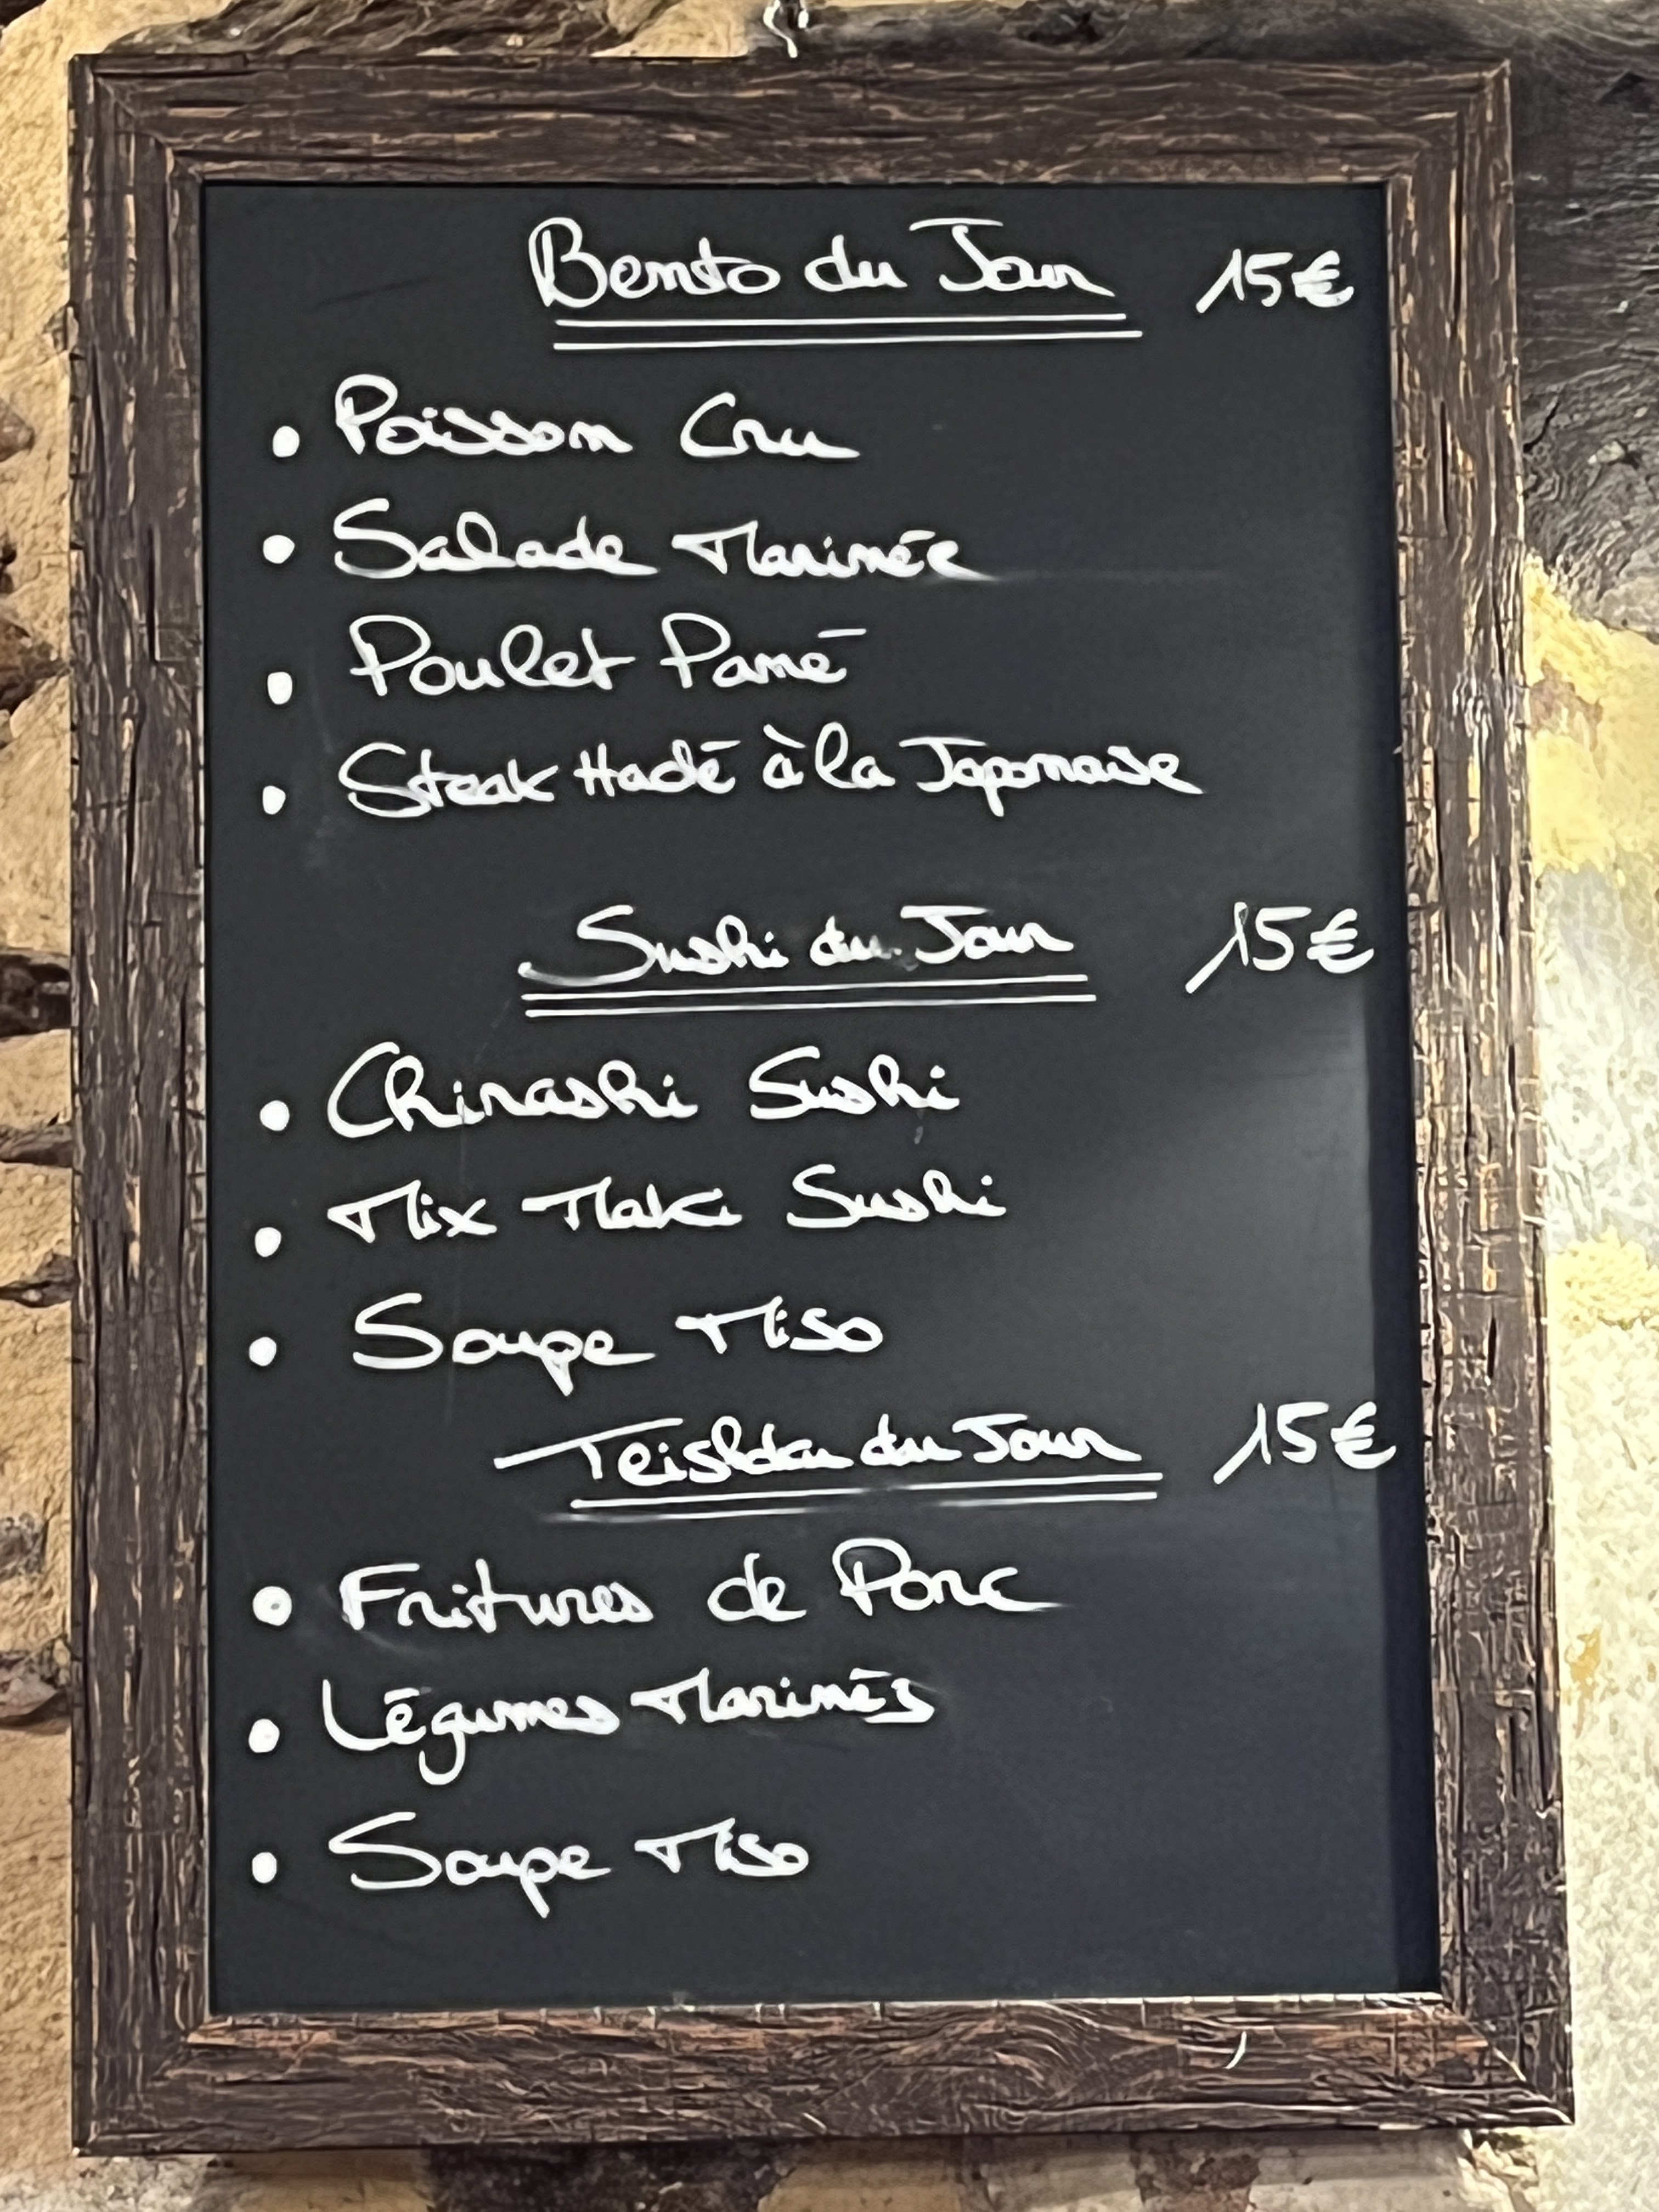 Bento du Jour 15€
• Poisson Cru
• Salade Marinée
• Poulet Pané
• Steak Haché à la Japonaise
Sushi du Jour 15€
• Chirashi Sushi
• Mix Maki Sushi
• Soupe Miso
Teishoku du Jour 15€
• Fritures de Porc
• Légumes Marinés
• Soupe Miso